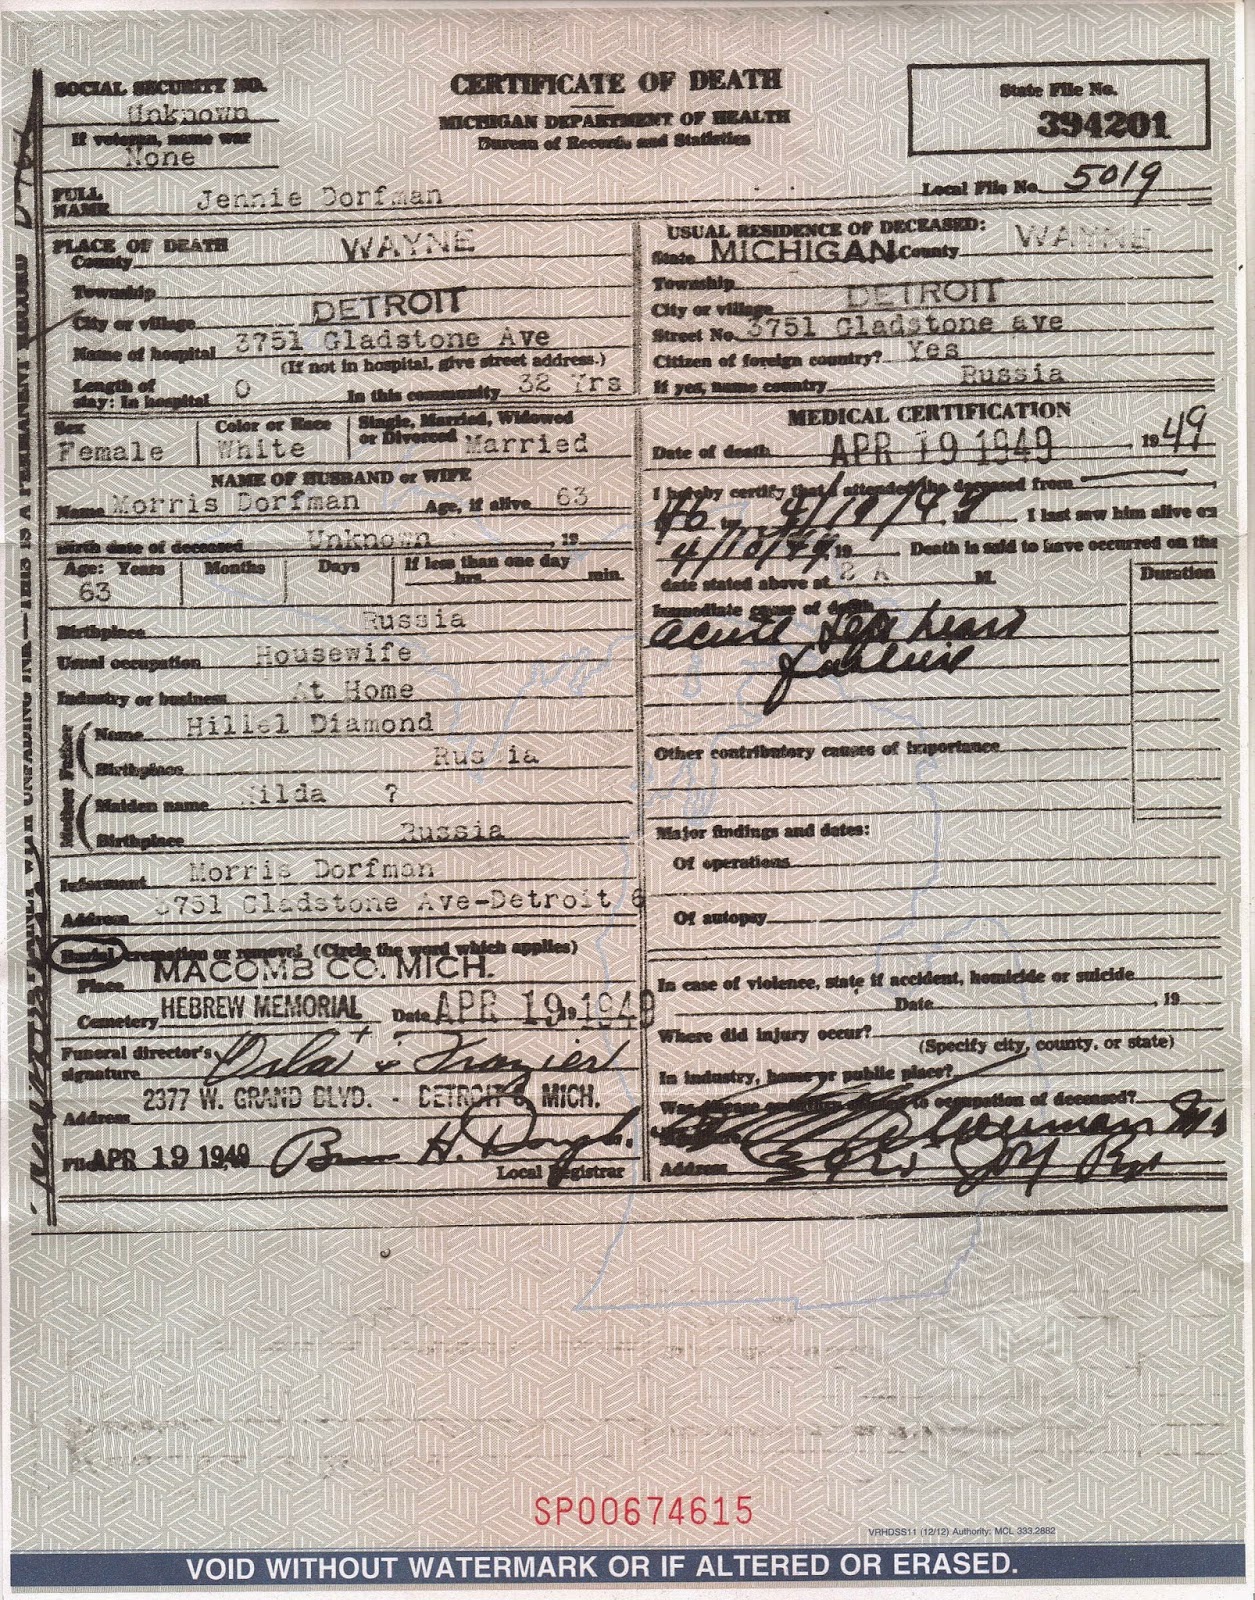 SOCIAL SECURITY NO.
Unknown
If veteran, name war
None
CERTIFICATE OF DEATH
MICHIGAN DEPARTMENT OF HEALTH
Bureau of Records and Statistics
State File No.
394201
Local File No. 5019
FULL NAME Jennie Dorfman
PLACE OF DEATH
County WAYNE
Township
City or village DETROIT
Name of hospital 3751 Gladstone Ave
(If not in hospital, give street address.)
Length of stay: In hospital 0 In this community 32 Yrs
USUAL RESIDENCE OF DECEASED:
State MICHIGAN County WAYNE
Township
City or village DETROIT
Street No. 3751 Gladstone ave
Citizen of foreign country? Yes
If yes, name country Russia
Sex Female
Color or Race White
Single, Married, Widowed or Divorced Married
NAME OF HUSBAND or WIFE
Name Morris Dorfman Age, if alive 63
Birth date of deceased Unknown , 19
Age: Years Months Days If less than one day
63 hrs. min.
Birthplace Russia
Usual occupation Housewife
Industry or business At Home
Father
Name Hillel Diamond
Birthplace Russia
Mother
Maiden name Hilda ?
Birthplace Russia
Informant Morris Dorfman
Address 3751 Gladstone Ave-Detroit 6
Burial cremation or removal (Circle the word which applies)
Place MACOMB CO. MICH.
Cemetery HEBREW MEMORIAL Date APR 19 19 1949
Funeral director's signature
Address 2377 W. GRAND BLVD. - DETROIT 8, MICH.
Filed APR 19 1949
Local Registrar
MEDICAL CERTIFICATION
Date of death APR 19 1949 1949
I hereby certify that I attended the deceased from
I last saw him alive on
19 Death is said to have occurred on the
date stated above at 2 A M.
Duration
Immediate cause of death
acute heart
failure
Other contributory causes of importance
Major findings and dates:
Of operations
Of autopsy
In case of violence, state if accident, homicide or suicide
Date , 19
Where did injury occur?
(Specify city, county, or state)
In industry, home or public place?
Was disease to occupation of deceased?
Address Joy
WITH UNFADING INK—THIS IS A PERMANENT RECORD
SP00674615
VRHDSS11 (12/12) Authority: MCL 333.2882
VOID WITHOUT WATERMARK OR IF ALTERED OR ERASED.